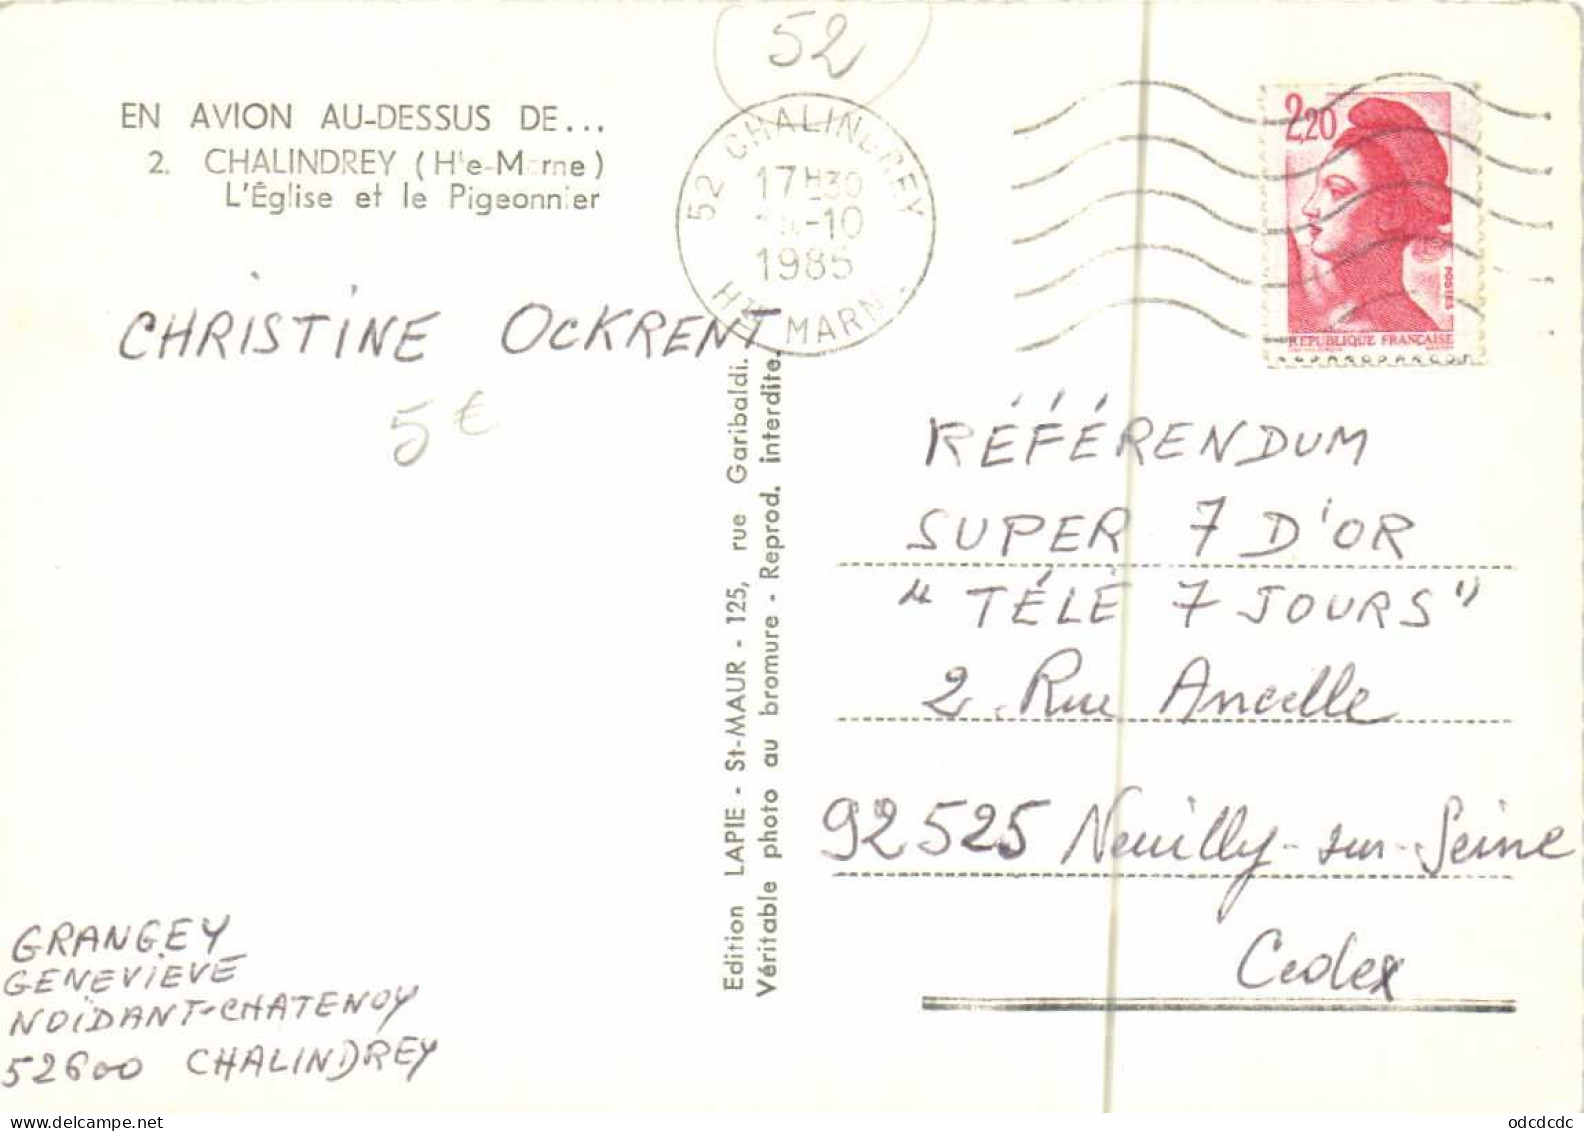 52
EN AVION AU-DESSUS DE...
2. CHALINDREY (Hte-Marne)
L'Église et le Pigeonnier
52 CHALINDREY
17H30
-10
1985
HTE MARNE
2,20
POSTES
RÉPUBLIQUE FRANÇAISE
CHRISTINE OCKRENT
5€
Edition LAPIE - St-MAUR - 125, rue Garibaldi.
Véritable photo au bromure - Reprod. interdite.
RÉFÉRENDUM
SUPER 7 D'OR
"TÉLÉ 7 JOURS"
2. Rue Ancelle
92525 Neuilly-sur-Seine
Cedex
GRANGEY
GENEVIEVE
NOÏDANT-CHATENOY
52600 CHALINDREY
odcdcdc